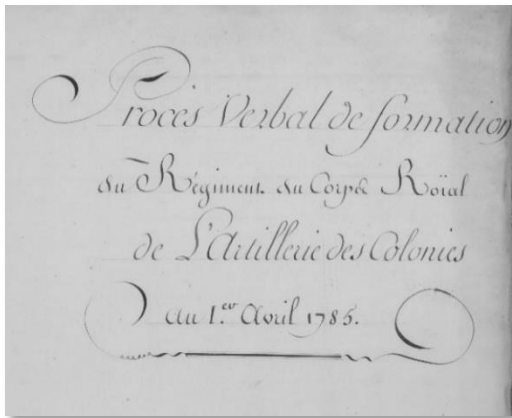 Procès Verbal de formation
du Régiment du Corps Roïal
de L'Artillerie des Colonies
au 1.er Avril 1785.